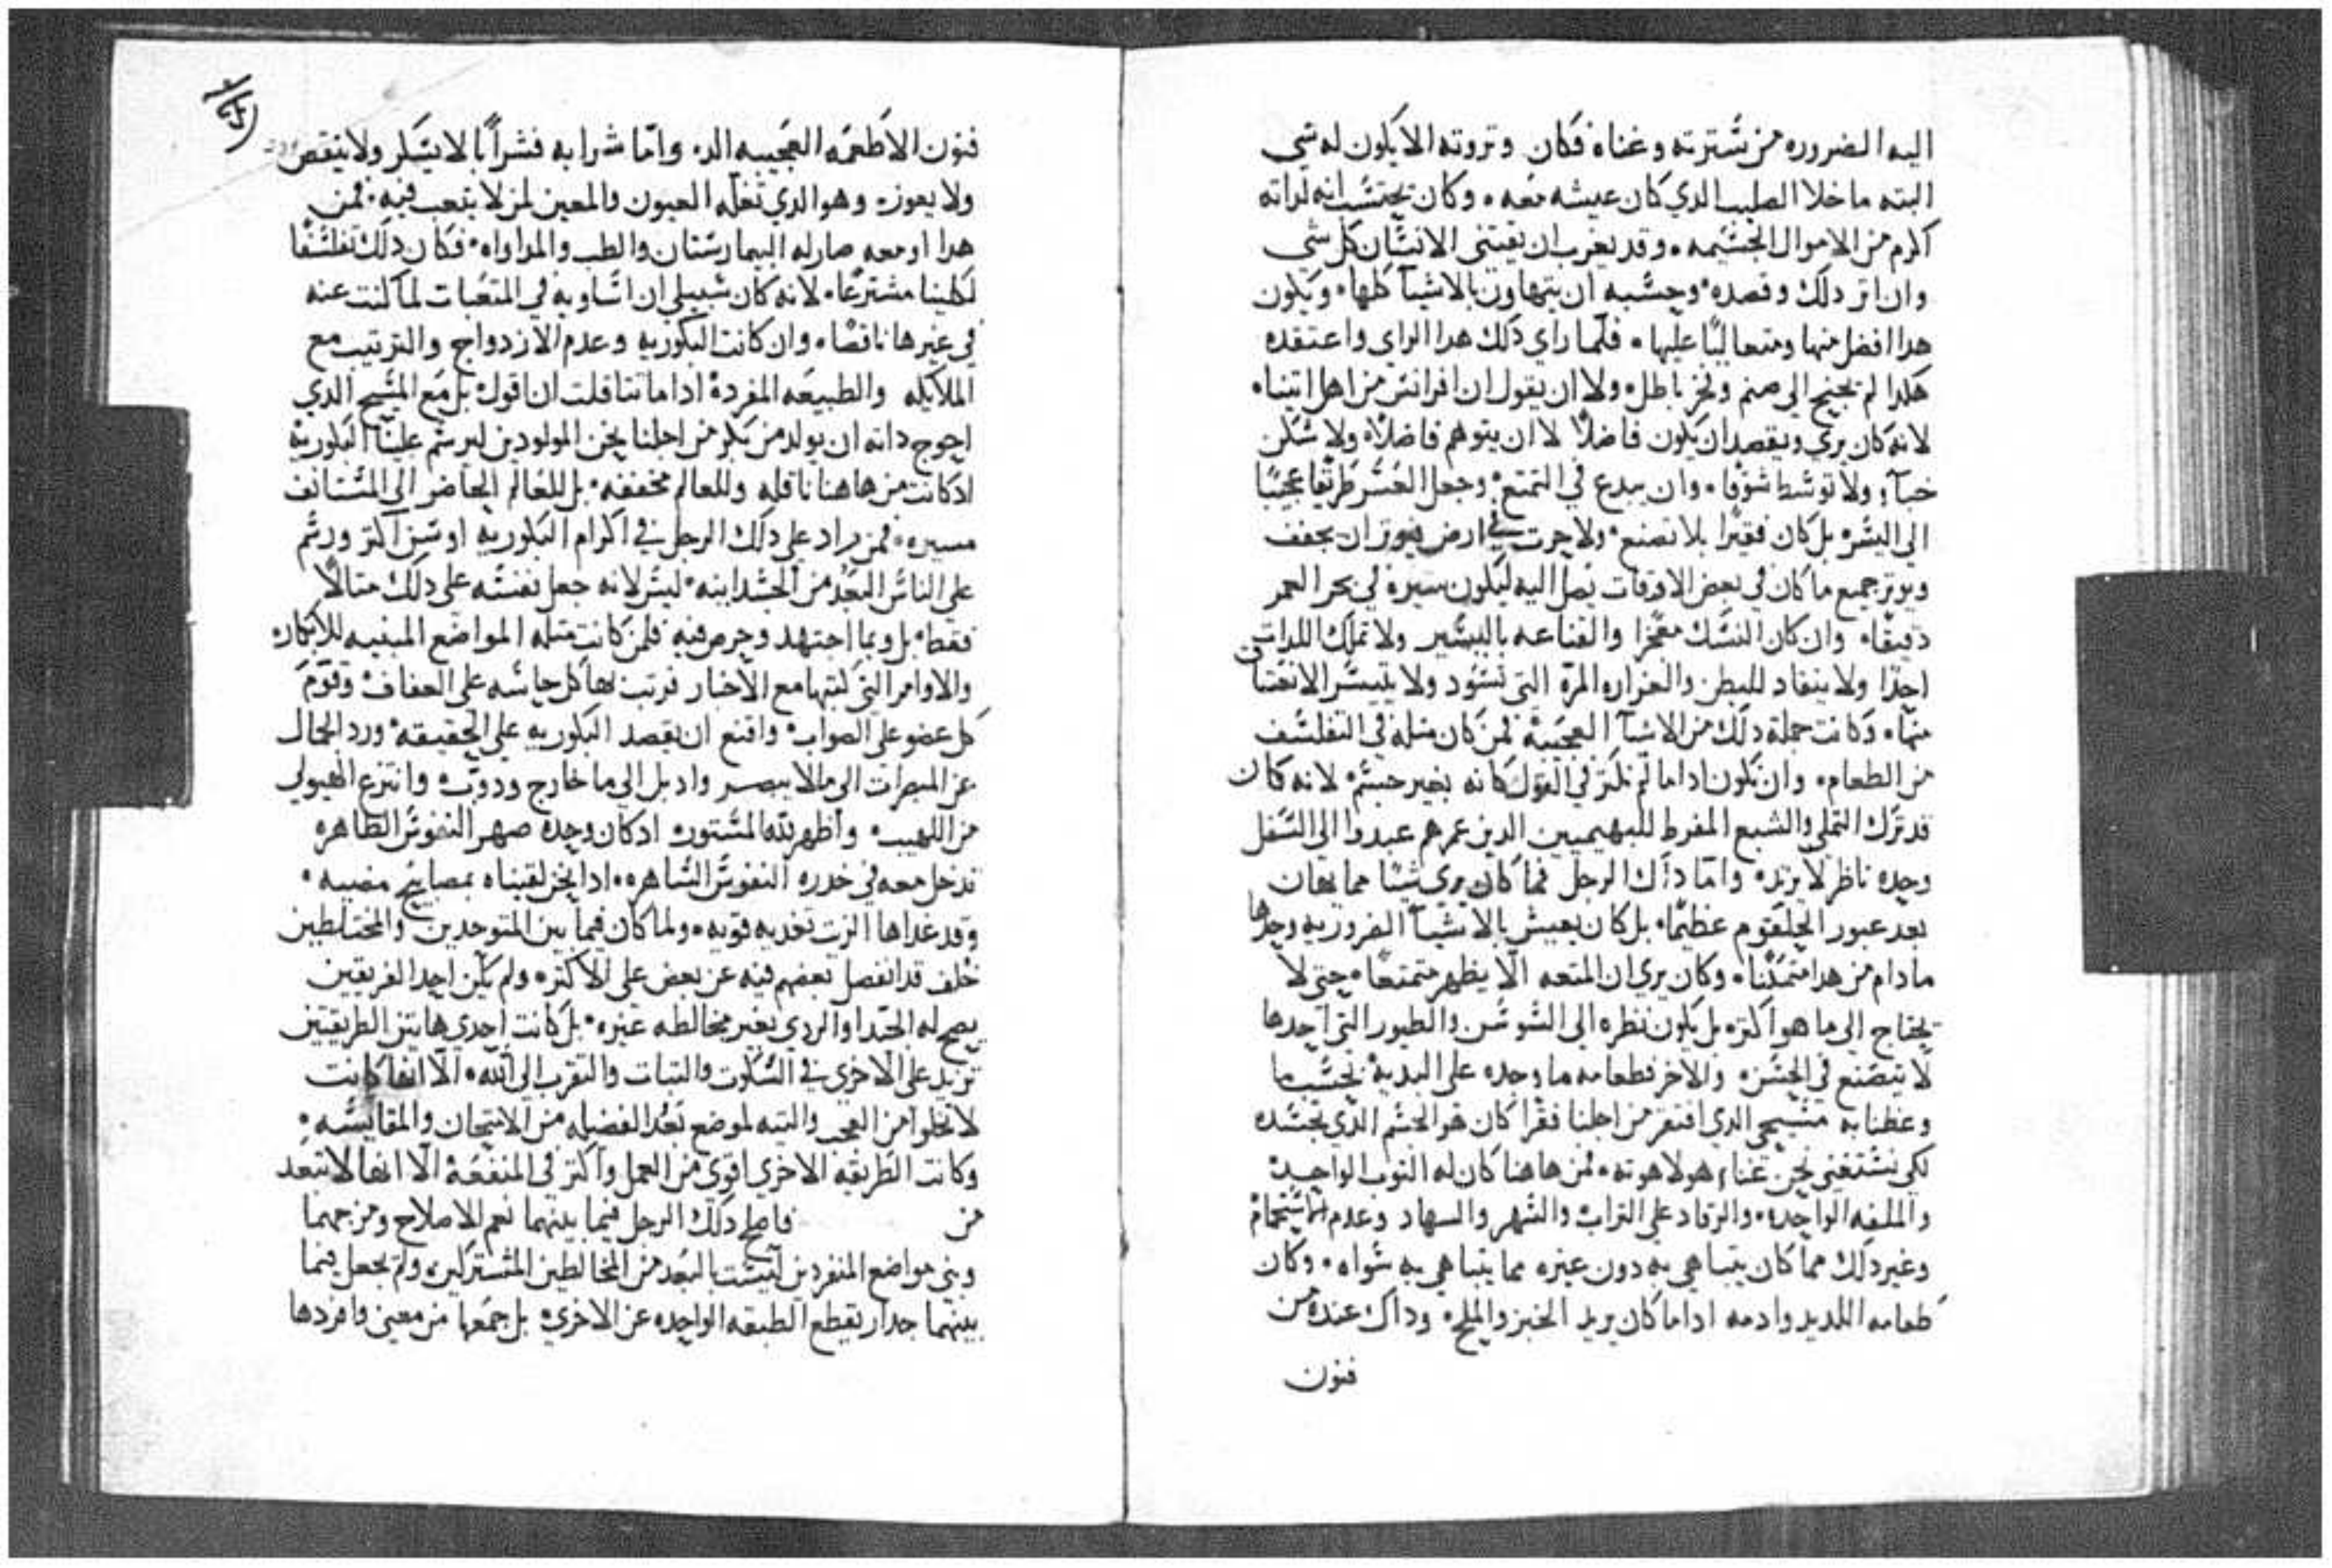 اليه الضروره من سترته وغناه فكان وتروته الا يكون له شي
البته ما خلا الصليب الدي كان عيشه معه وكان يحتسب انه لداته
اكرم من الاموال الجسيمه وقد يغرب ان يقتني الانسان كل شي
وان اتر دلك وقصده وحسبه ان يتهاون بالاشيآ كلها ويكون
هدا افضل منها ومتعاليًا عليها فلما راي دلك هدا الراي واعتقده
هكدا لم يجنح الى صنم وفخر باطل ولا ان يقول ان اقراتس من اهل اتينا
لانه كان يري ويقصد ان يكون فاضلًا لا ان يتوهم فاضلًا ولا سكن
خبآء ولا توسط سوقا وان يبدع في التمتع وجعل العسر طريقا عجيبًا
الى اليسر بل كان فقيرًا بلا تصنع ولا حرت في ارض فيوتر ان يجفف
ويوتر جميع ما كان في بعض الاوقات يصل اليه ليكون سيره في بحر العمر
دقيقا وان كان النسك معجزا والقناعه باليسير ولا تملك اللدات
احدًا ولا ينقاد للبطن والغراره المرة التي تسود ولا يتيسر الانعتاق
منها وكانت جملة دلك من الاشيآ العجيبة لمن كان مثله في التفلسف
من الطعام وان يكون اداما لم نكتر في القول كانه بغير جسم لانه كان
قد ترك التملي والشبع المفرط للبهيميين الدين عمرهم عبدوا الى السفل
وحده ناظر لا يزيد واما داك الرجل فما كان يري شيئا مما يعان
بعد عبور الحلقوم عظيمًا بل كان يعيش بالاشيآ الضروريه وحدها
ما دام من هدا متمكنًا وكان يري ان المتعه الا يظهر متمتعًا حتى لا
يحتاج الى ما هو اكتر بل يكون نظره الى السوسن والطيور التي احدها
لا يتصنع في الحسن والاخر فطعامه ما وجده على البديه بحسب ما
وعظنا به مسيحي الدي افتقر من اجلنا فقرا كان هو الجسم الدي تجسده
لكي نستغني نحن غناء هو لاهوته فمن هاهنا كان له التوب الواحد
والملفه الواحده والرقاد على التراب والسهر والسهاد وعدم الاستحمام
وغير دلك مما كان يتباهي به دون غيره مما يتباهي به سواه وكان
طعامه اللديد وادمه اداما كان يريد الخبز والملح وداك عنده من
فنون
فنون الاطعمه العجيبه الد واما شرابه فشرابًا لا يسكر ولا ينقص
ولا يعوز وهو الدي تغله العيون والمعين لمن لا يتعب فيه فمن
هدا او معه صار له البيمارستان والطب والمداواه فكان دلك تفلسفا
لكلينا مشترعًا لانه كان سبيلي ان اساويه في المتعبات لما كنت عنه
في غيرها ناقصًا وان كانت البكوريه وعدم الازدواج والترتيب مع
الملايكه والطبيعه المفردة اداما تتاقلت ان اقول بل مع المسيح الدي
احوج داته ان يولد من بكر من اجلنا نحن المولودين ليرسم علينا البكوريه
اد كانت من هاهنا ناقله وللعالم مخففه بل للعالم الحاضر الى المستانف
مسيره فمن زاد على دلك الرجل في اكرام البكوريه او سن اكتر ورسم
على الناس البعد من الجسدانيه ليس لانه جعل نفسه على دلك متالًا
فقط بل وبما اجتهد وحرص فيه فلمن كانت متله المواضع المبنيه للابكار
والاوامر التي كتبها مع الاخبار فرتب بها كل حاسه على العفاف وقوم
كل عضو على الصواب واقنع ان يقصد البكوريه على الحقيقه ورد الجمال
عن المبصرات الى ما لا يبصر وادبل الى ما خارج ودوب وانتزع الهيولي
من اللهيب واظهر لله المستوره اد كان وحده صهر النفوس الطاهره
تدخل معه في خدره النفوس الساهره ادا نحن لقيناه بمصابيح مضيه
وقد غداها الزيت تغديه قويه ولما كان فيما بين المتوحدين والمختلطين
خلف قد انفصل بعضهم فيه عن بعض على الاكتر ولم يكن احد الفريقين
يصح له الجيد او الردي بغير مخالطه غيره بل كانت احدي هاتين الطريقتين
تزيد على الاخرى في السكوت والتبات والتقرب الى الله الا انها كانت
لا تخلوا من العجب والتيه لموضع بعد الفضيله من الامتحان والمقايسه
وكانت الطريقه الاخري اقوي من العمل واكتر في المنفعة الا انها لا تبعد
من فاصلح دلك الرجل فيما بينهما نعم الاصلاح ومزجهما
وبني مواضع المنفردين ليست بالبعد من المخالطين المشتركين ولم يجعل فيما
بينهما جدار يقطع الطبقه الواحده عن الاخري بل جمعها من معني وافردها